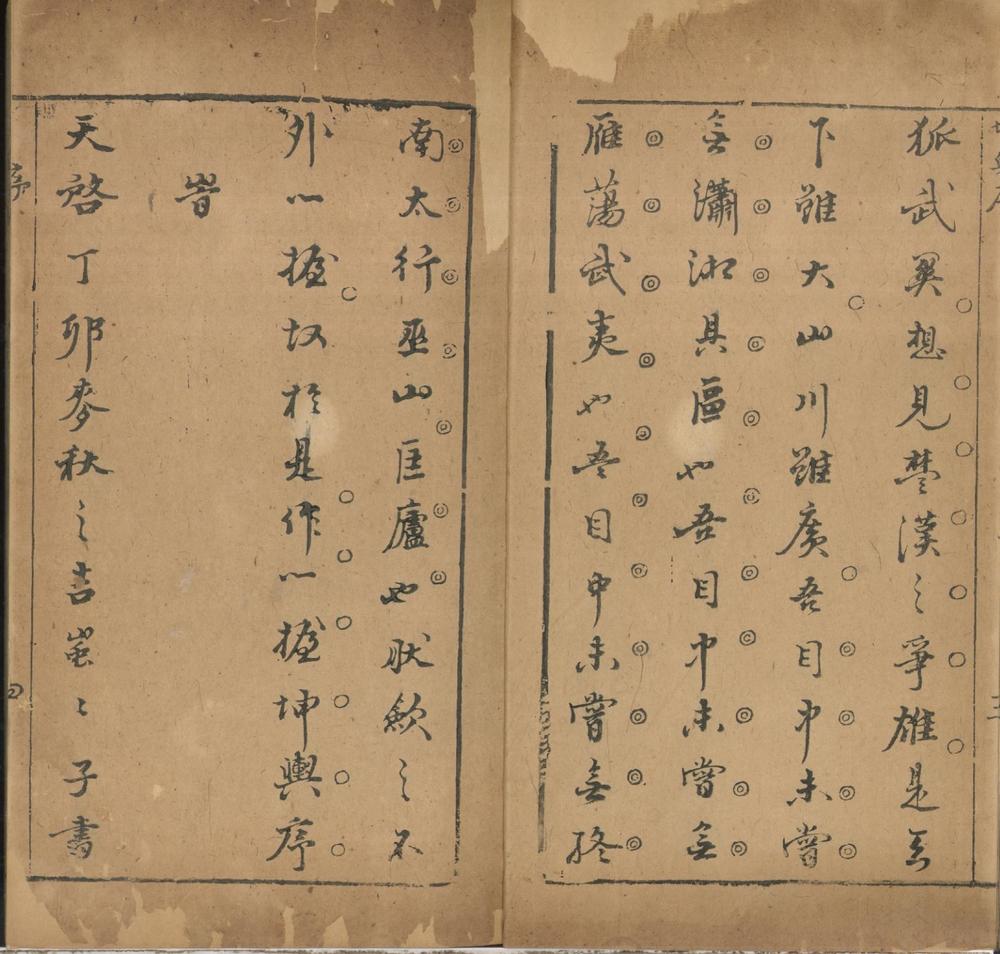 狐武異想見楚漢之爭雄是天
下雖大山川雖廣吾目中未嘗
無瀟湘具區也吾目中未嘗無
雁蕩武夷也吾目中未嘗無終
南太行巫山匡廬也狀歟之不
外一握坄於是作一握坤輿序
峕
天啓丁卯麥秋之吉蚩〻子書
序
四